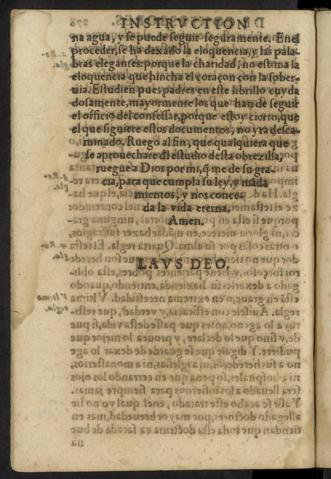 INSTRVCTION
na agua, y se puede seguir seguramente. En el
proceder, se ha dexado la eloquencia, y las pala-
bras elegantes: porque la charidad, no estima la
eloquencia que hincha el coraçon con la sober-
uia. Estudien pues padres en este librillo cuyda
dosamente, mayormente los que han de seguir
el officio del confessar, porque estoy cierto, que
el que siguiere estos documentos, no yra desca-
minado. Ruego al fin, que qualquiera que
se aprouechare del estudio desta obrezilla,
ruegue a Dios por mi, q̃ me de su gra-
cia, para que cumpla su ley, y māda
mientos, y nos conce-
da la vida eterna.
Amen.
LAVS DEO.